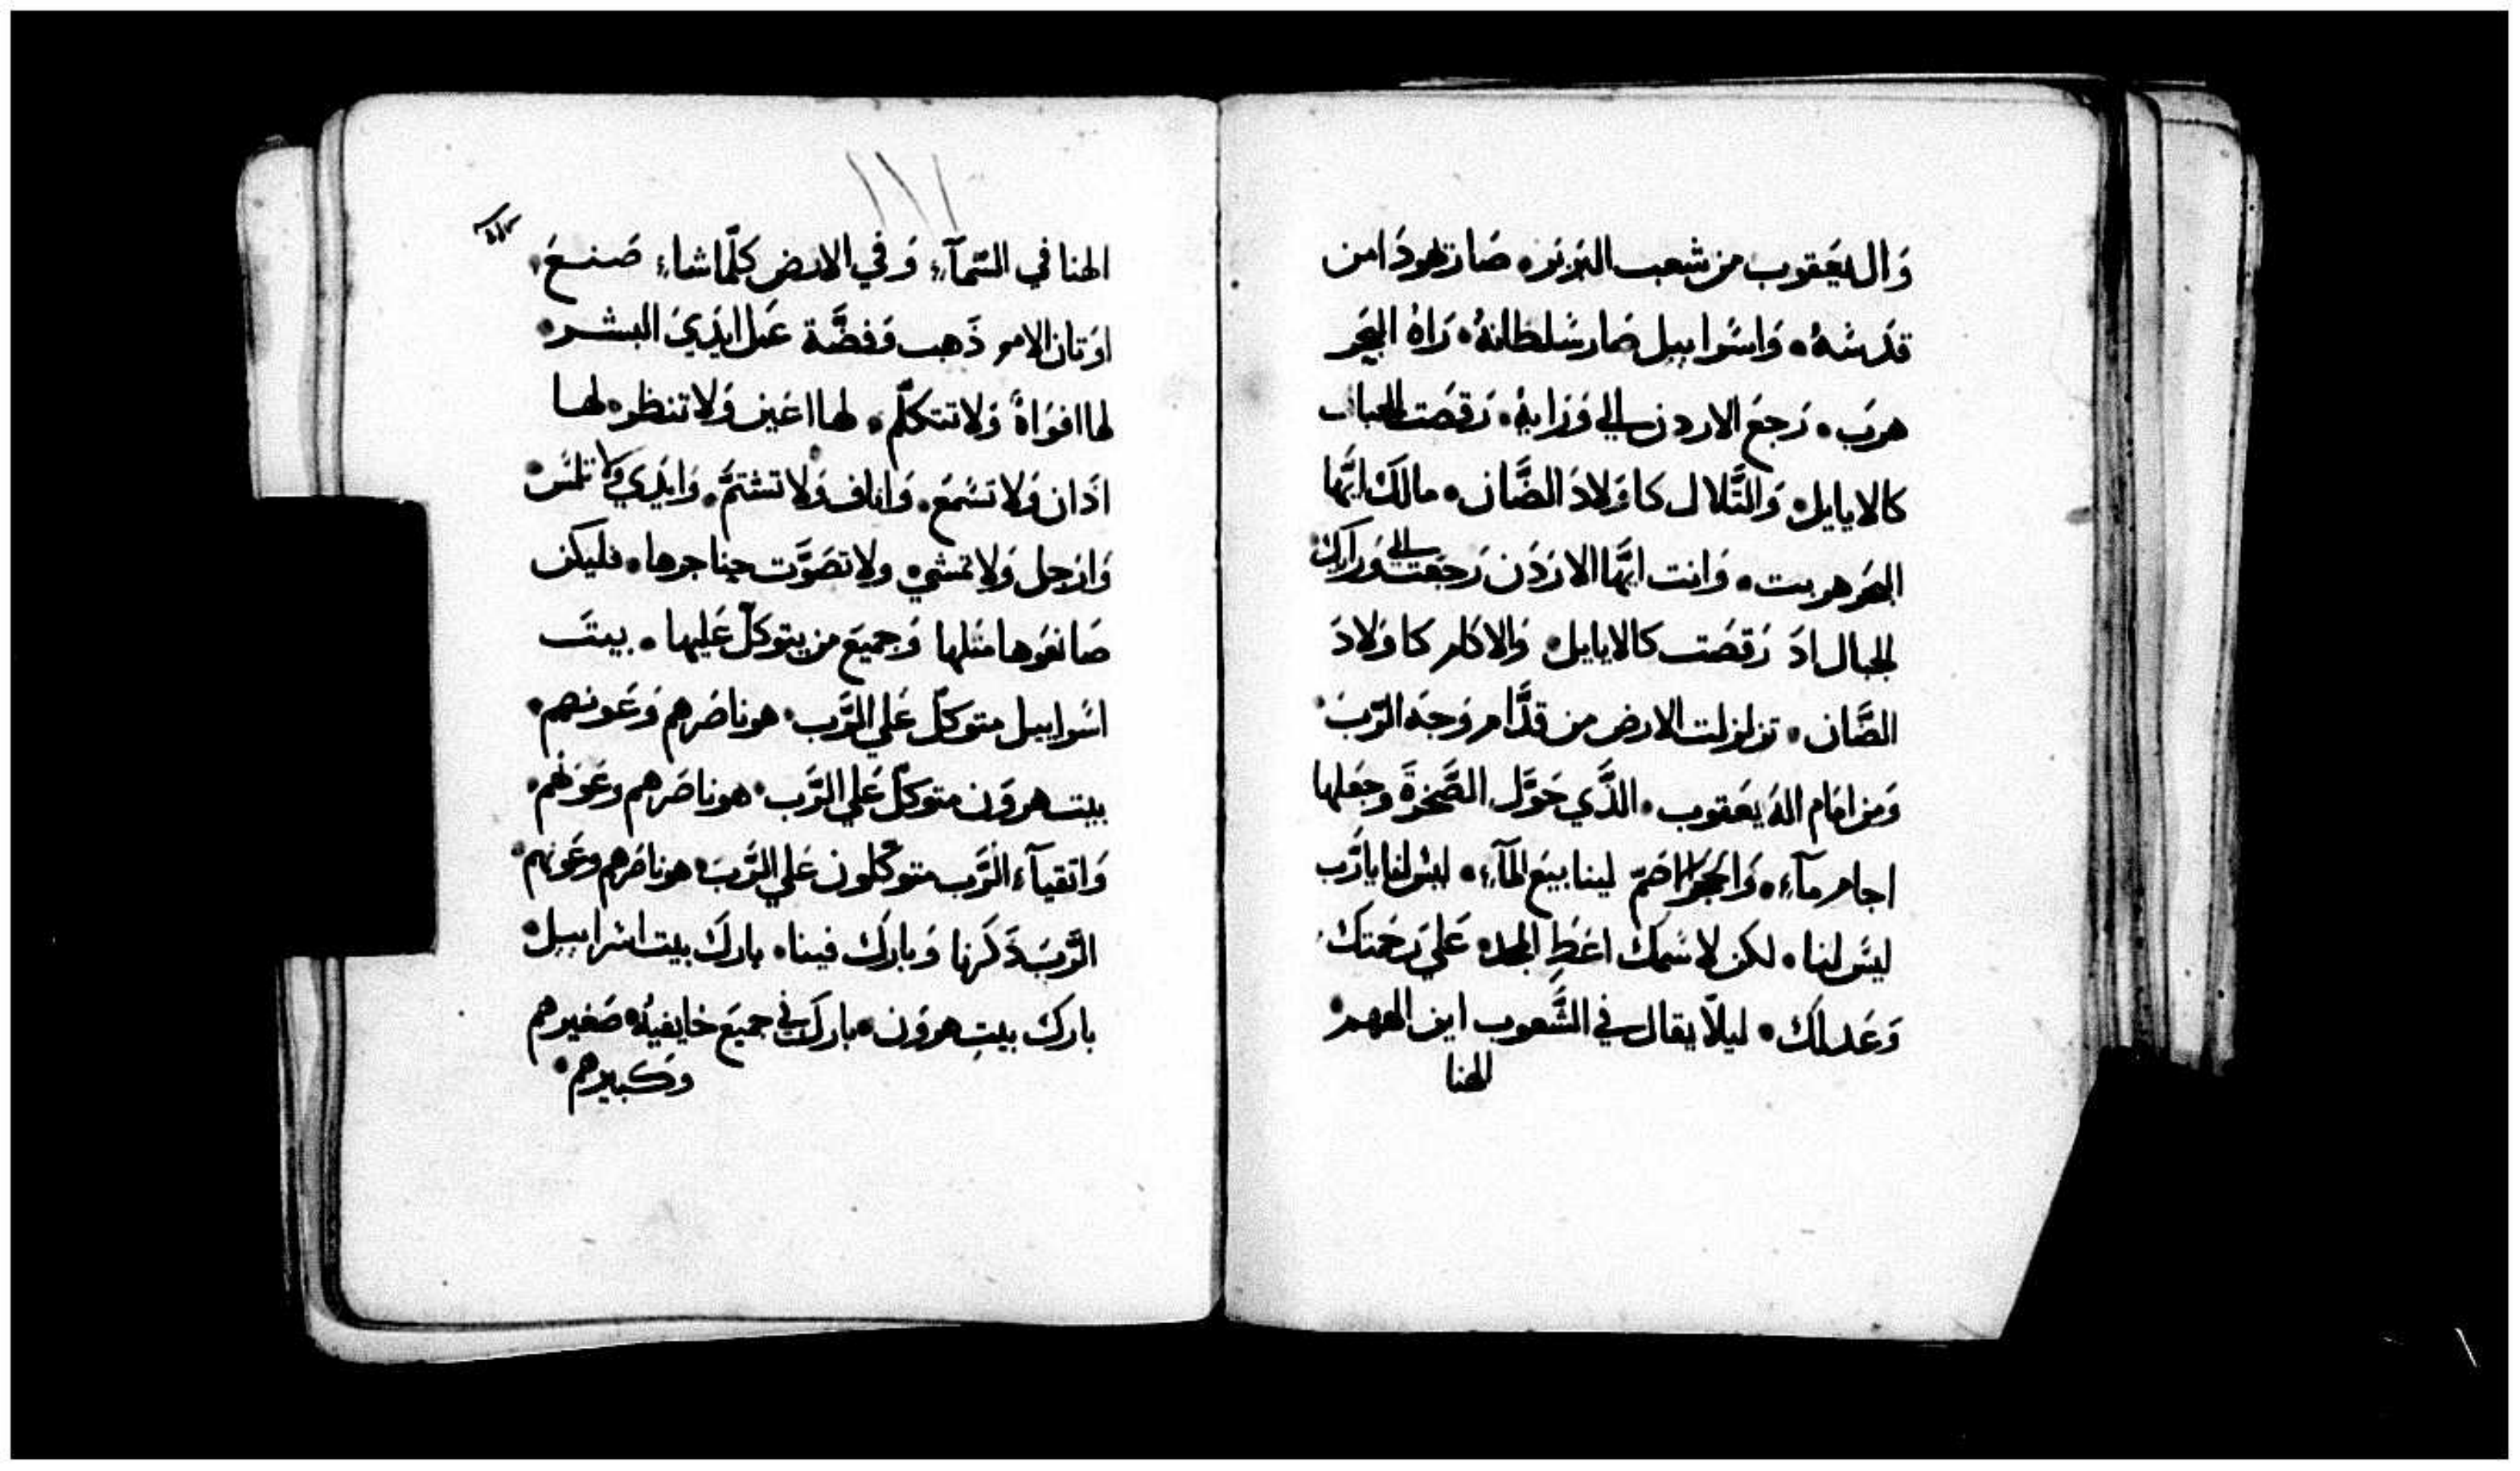 وَال يعَقوب من شعب البَربَر • صَارَت يهودَا من
قدَسُهُ • وَاسُرابيل صَار سُلطانهُ • رَاهُ البحَر
هربَ • رَجعَ الاردن الي وَرَايهُ • رَقصَت الجبال
كالايايل • وَالتَّلال كاوَلادَ الضَّان • مالكَ ايَّها
البحَر هربت • وَانت ايَّها الارَدَن رَجعَت الي وَرَايكَ •
الجبال ادَ رَقصَت كالايايل • وَالاكام كاوَلادَ
الضَّان • تزلزلت الارض من قدَّام وَجهَ الرَّبَ •
وَمن امَام الهَ يعَقوب • الذَّي حَوَّل الصَّخرَةَ وجعَلها
اجام مآء • وَالحجَر الاصَمّ لينابيعَ المآء • ليسَ لنا يارَّب
ليسَ لنا • لكن لاسَمكَ اعَطِ المجد • عَلي رَحَمتكَ
وَعَدلكَ • ليلاّ يقال في الشَّعوب اين الههم •
الهنا
الهنا في السَّمآء وَفي الارض كلّما شاء صَنعَ •
اوَتان الامم ذَهب وَفضَّة عمَل ايَديَ البشر •
لها افوَاهٌ وَلا تتكلّم • لها اعَين وَلا تنظر • لها
اذَان وَلا تسَمعَ • وَاناف وَلا تشتمَّ • وَايَدي وَلا تلمَسَ •
وَارَجل وَلا تمشي • ولا تصَوَّت حناجرها • فليكن
صَانعَوها مثلها وَجميعَ من يتوَكلّ عَليها • بيتَ
اسَرابيل متوكلّ عَلي الرَّب • هو ناصَرهم وَعَونهم •
بيت هروَن متوكلّ عَلي الرَّب • هو ناصَرهم وعَوَنهُم •
وَاتقيآء الرَّب متوَكّلون عَلي الرَّبَ • هو ناصَرهم وعَونهم •
الرَّبَ ذَكرَنا وَبارَكَ فينا • بارَكَ بيت اسَرابيل •
بارَكَ بيتِ هروَن • بارَكَ في جميعَ خايفيهُ • صَغيرهم
وَكبيرهم •